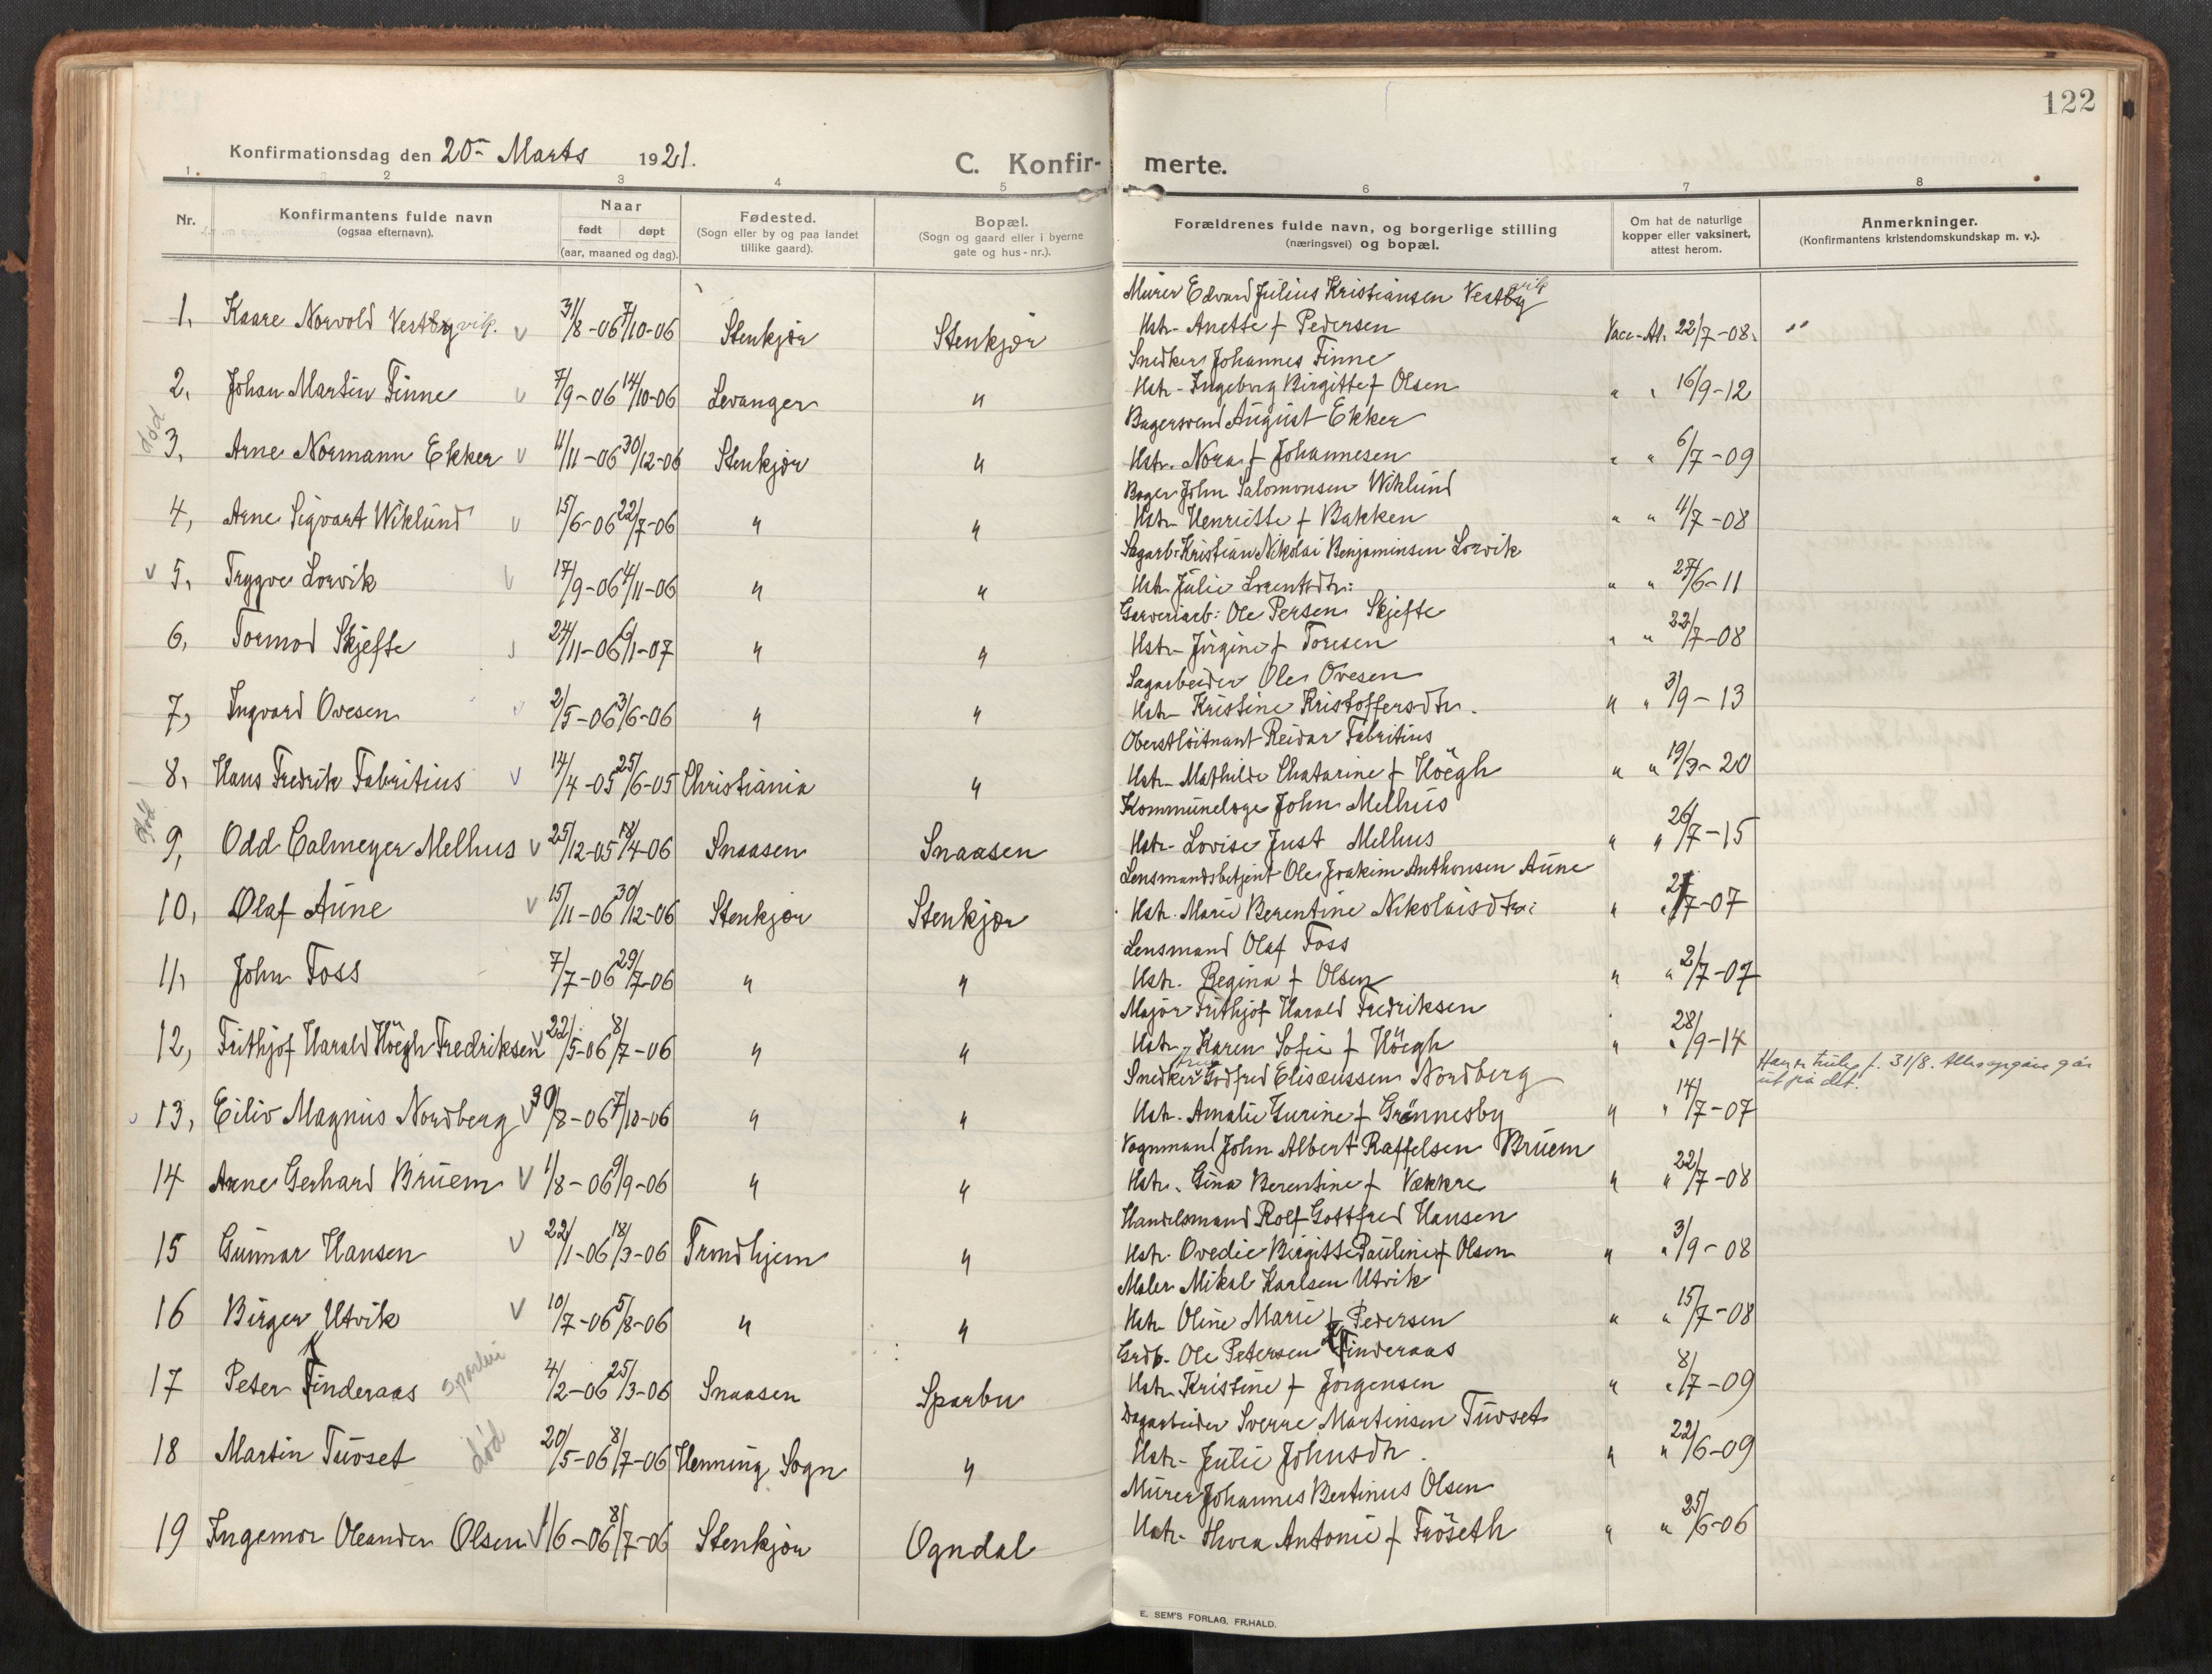 122
Konfirmationsdag den 20de Marts 1921.
C. Konfir- merte.
1. 2 3 4 5 6 7 8
Nr.
Konfirmantens fulde navn
(ogsaa efternavn).
Naar
født døpt
(aar, maaned og dag).
Fødested.
(Sogn eller by og paa landet
tillike gaard).
Bopæl.
(Sogn og gaard eller i byerne
gate og hus-nr.).
Forældrenes fulde navn, og borgerlige stilling
(næringsvei) og bopæl.
Om hat de naturlige
kopper eller vaksinert,
attest herom.
Anmerkninger.
(Konfirmantens kristendomskundskap m. v.).
Murer Edvard Julius Kristiansen Vestby vik
1, Kaare Norvold Vestby vik. v 31/8-06 7/10-06 Stenkjær Stenkjær Hstr- Anette f Pedersen Vacc-At. 22/7-08. "
Snedker Johannes Finne
2, Johan Martin Finne v 7/9-06 14/10-06 Levanger " Hstr- Ingeborg Birgitte f Olsen " " 16/9-12
Bagersvend August Ekker
død 3, Arne Normann Ekker v 4/11-06 30/12-06 Stenkjær " Hstr. Nora f Johannesen " " 6/7-09
Bager John Salomonsen Wiklund
4, Arne Sigvart Wiklund v 15/6-06 22/7-06 " " Hstr- Henriette f Bakken " " 4/7-08
Sagarb: Kristian Nikolai Benjaminsen Lorvik
v 5, Trygve Lorvik v 17/9-06 4/11-06 " " Hstr Julie Lorentsdtr: " " 27/6-11
Garveriarb: Ole Persen Skjefte
6, Tormod Skjefte v 24/11-06 6/1-07 " " Hstr- Jørgine f Toresen " " 22/7-08
Sagarbeider Ole Ovesen
7, Ingvard Ovesen v 2/5-06 3/6-06 " " Hstr- Kristine Kristoffersdtr. " " 3/9-13
Oberstløitnant Reidar Fabritius
8, Hans Fredrik Fabritius v 14/4-05 25/6-05 Christiania " Hstr- Mathilde Chatarine f Høegh " " 19/3-20
Kommunelæge John Melhus
død 9, Odd Calmeyer Melhus v 25/12-05 18/4-06 Snaasen Snaasen Hstr- Lovise Just Melhus " " 26/7-15
Lensmandsbetjent Ole Joakim Anthonsen Aune
10, Olaf Aune v 15/11-06 30/12-06 Stenkjær Stenkjær Hstr. Marie Berentine Nikolaisdtr: " " 2/7-07
Lensmand Olaf Foss
11, John Foss 7/7-06 29/7-06 " " Hstr. Regina f Olsen " " 2/7-07
Major Frithjof Harald Fredriksen
12, Frithjof Harald Høegh Fredriksen v 22/5-06 8/7-06 " " Hstr- Karen Sofie f Høegh " " 28/9-14
Snedker Godfred Elisæussen Nordberg
13, Eiliv Magnus Nordberg v 30/8-06 7/10-06 " " Hstr. Amalie Gurine f Grønnesby " " 14/7-07 f. 31/8. går ut på det.
Vognmand John Albert Raffelsen Bruem
14 Arne Gerhard Bruem v 1/8-06 9/9-06 " " Hstr. Gina Berentine f Vekkre " " 22/7-08
Handelsmand Rolf Gottfred Hansen
15 Gunnar Hansen v 22/1-06 18/3-06 Trondhjem " Hstr. Ovedie Birgitte Pauline f Olsen " " 3/9-08
Maler Mikal Karlsen Utvik
16 Birger Utvik v 10/7-06 5/8-06 " " Hstr- Oline Marie f Pedersen " " 15/7-08
Grdb- Ole Petersen Finderaas
17 Peter Finderaas Sparbu 4/2-06 25/3-06 Snaasen Sparbu Hstr. Kristine f Jørgensen " " 8/7-09
Dagarbeider Sverre Martinsen Tuvset
18 Martin Tuvset død 20/5-06 8/7-06 Henning Sogn " Hstr- Julie Johnsdtr. " " 22/6-09
Murer Johannes Bertinus Olsen
19 Ingemor Oleander Olsen v 1/6-06 8/7-06 Stenkjær Ogndal Hstr- Thora Antonie f Frøseth " " 25/6-06
E. SEM'S FORLAG, FR.HALD.